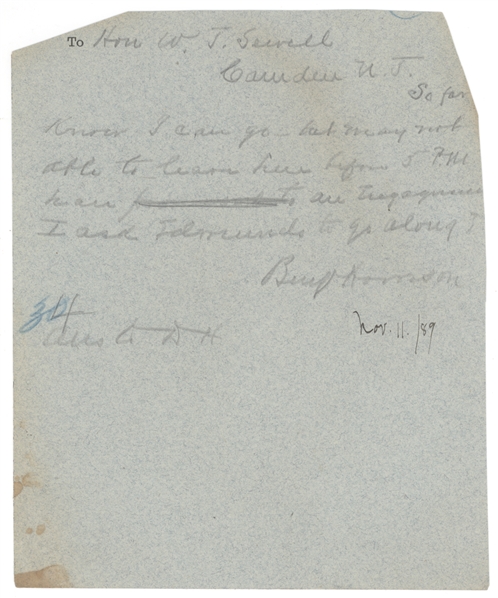 To Hon W. J. Sewell
Camden N. J.
So far
know I can go - but may not
able to leave here before 5 P.M
have to an Engagement
I ask Edmunds to go along ?
Benj Harrison
Nov. 11. /89